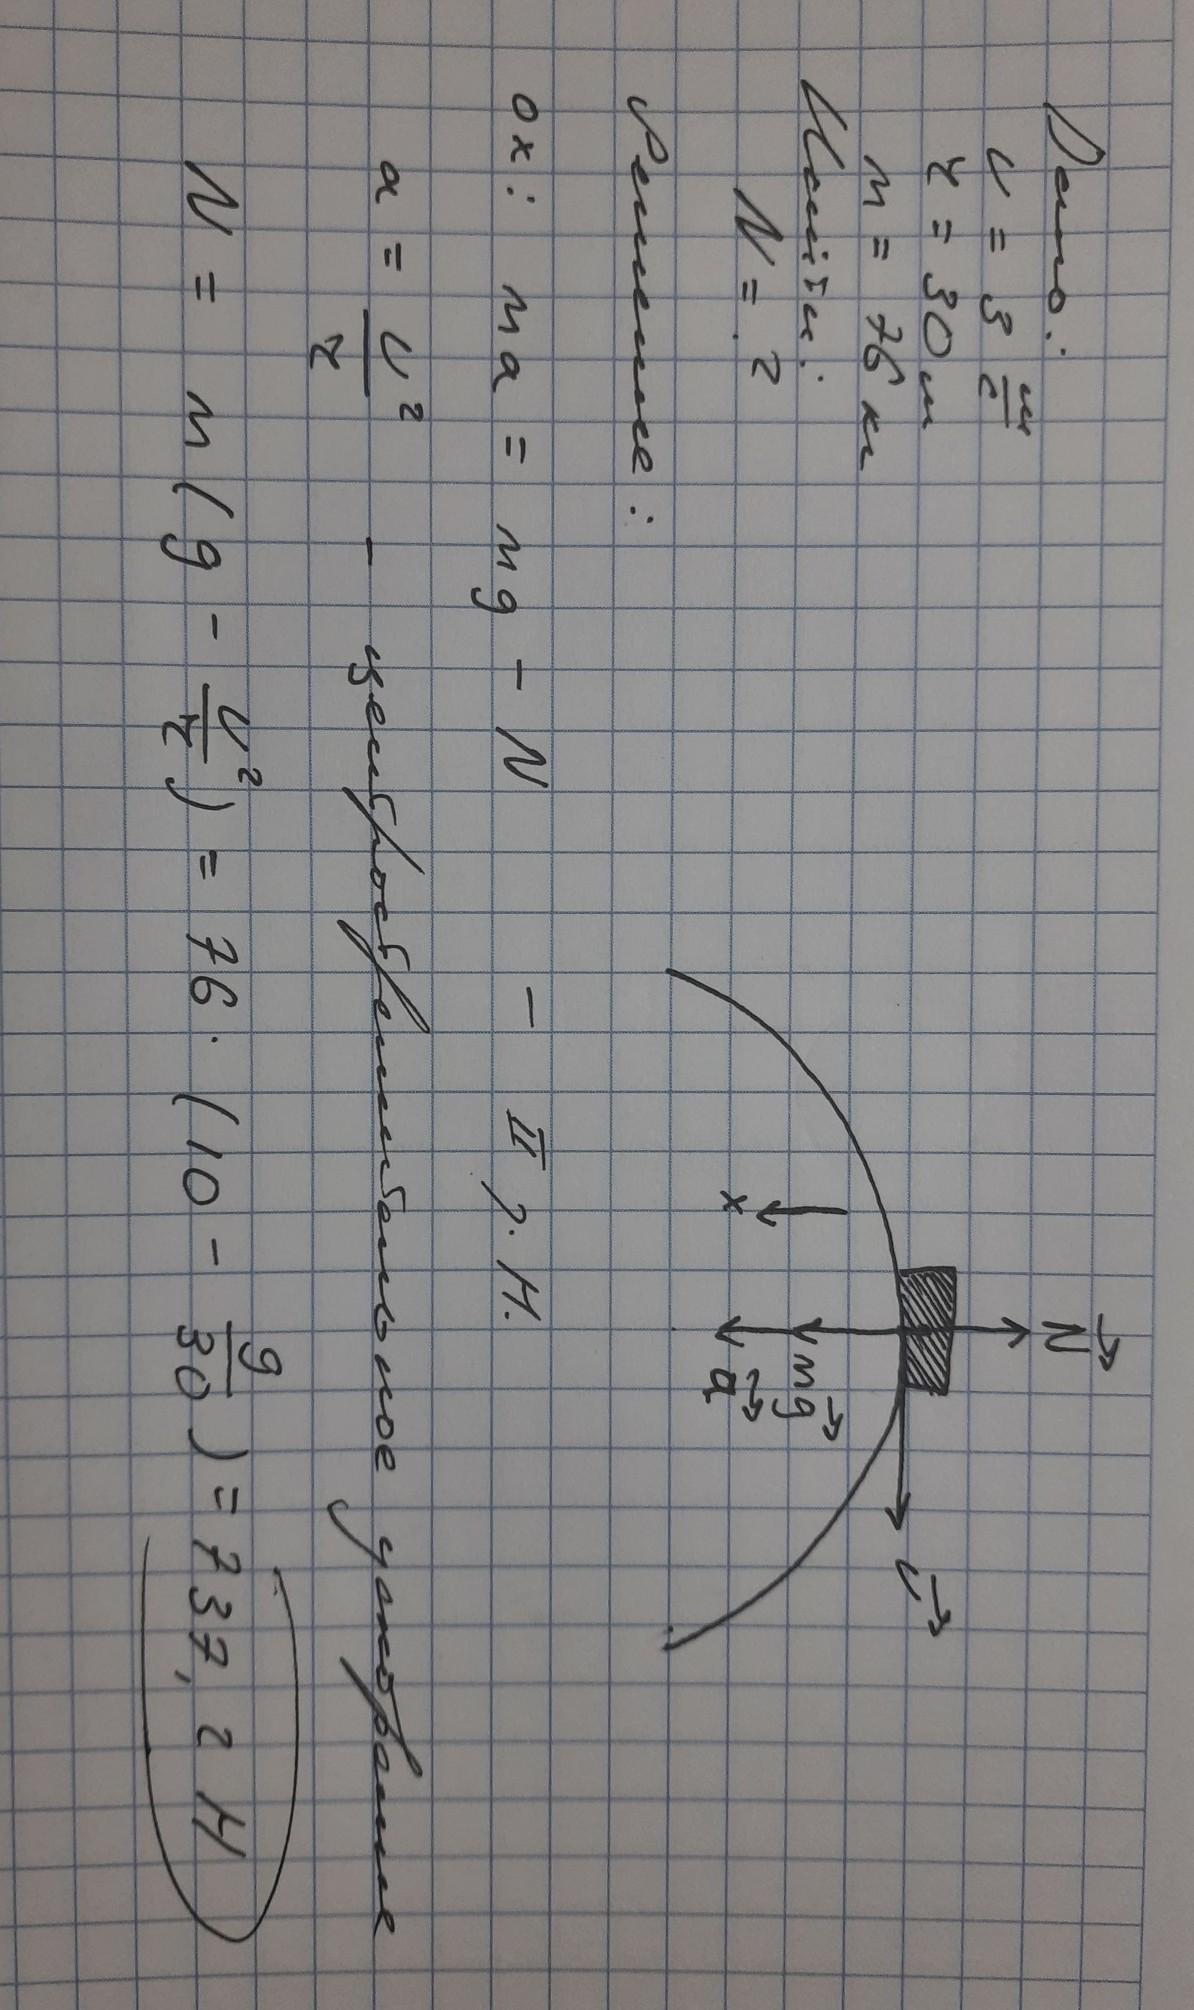 Дано:
v = 3 м/с
r = 30 м
m = 76 кг
Найти:
N = ?
N
v
mg
a
x
Решение:
ox: ma = mg - N - II з. Н.
a = v²/r - центростремительное ускорение
N = m(g - v²/r) = 76 · (10 - 9/30) = 737,2 Н